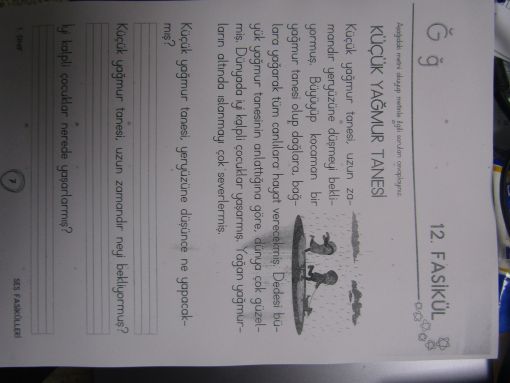 Ğ ğ
12. FASİKÜL
Aşağıdaki metni okuyup metinle ilgili soruları cevaplayınız.
KÜÇÜK YAĞMUR TANESİ
Küçük yağmur tanesi, uzun za-
mandır yeryüzüne düşmeyi bekli-
yormuş. Büyüyüp kocaman bir
yağmur tanesi olup dağlara, bağ-
lara yağarak tüm canlılara hayat verecekmiş. Dedesi bü-
yük yağmur tanesinin anlattığına göre, dünya çok güzel-
miş. Dünyada iyi kalpli çocuklar yaşarmış. Yağan yağmur-
ların altında ıslanmayı çok severlermiş.
Küçük yağmur tanesi, yeryüzüne düşünce ne yapacak-
mış?
Küçük yağmur tanesi, uzun zamandır neyi bekliyormuş?
İyi kalpli çocuklar nerede yaşarlarmış?
1. Sınıf
7
SES FASİKÜLLERİ